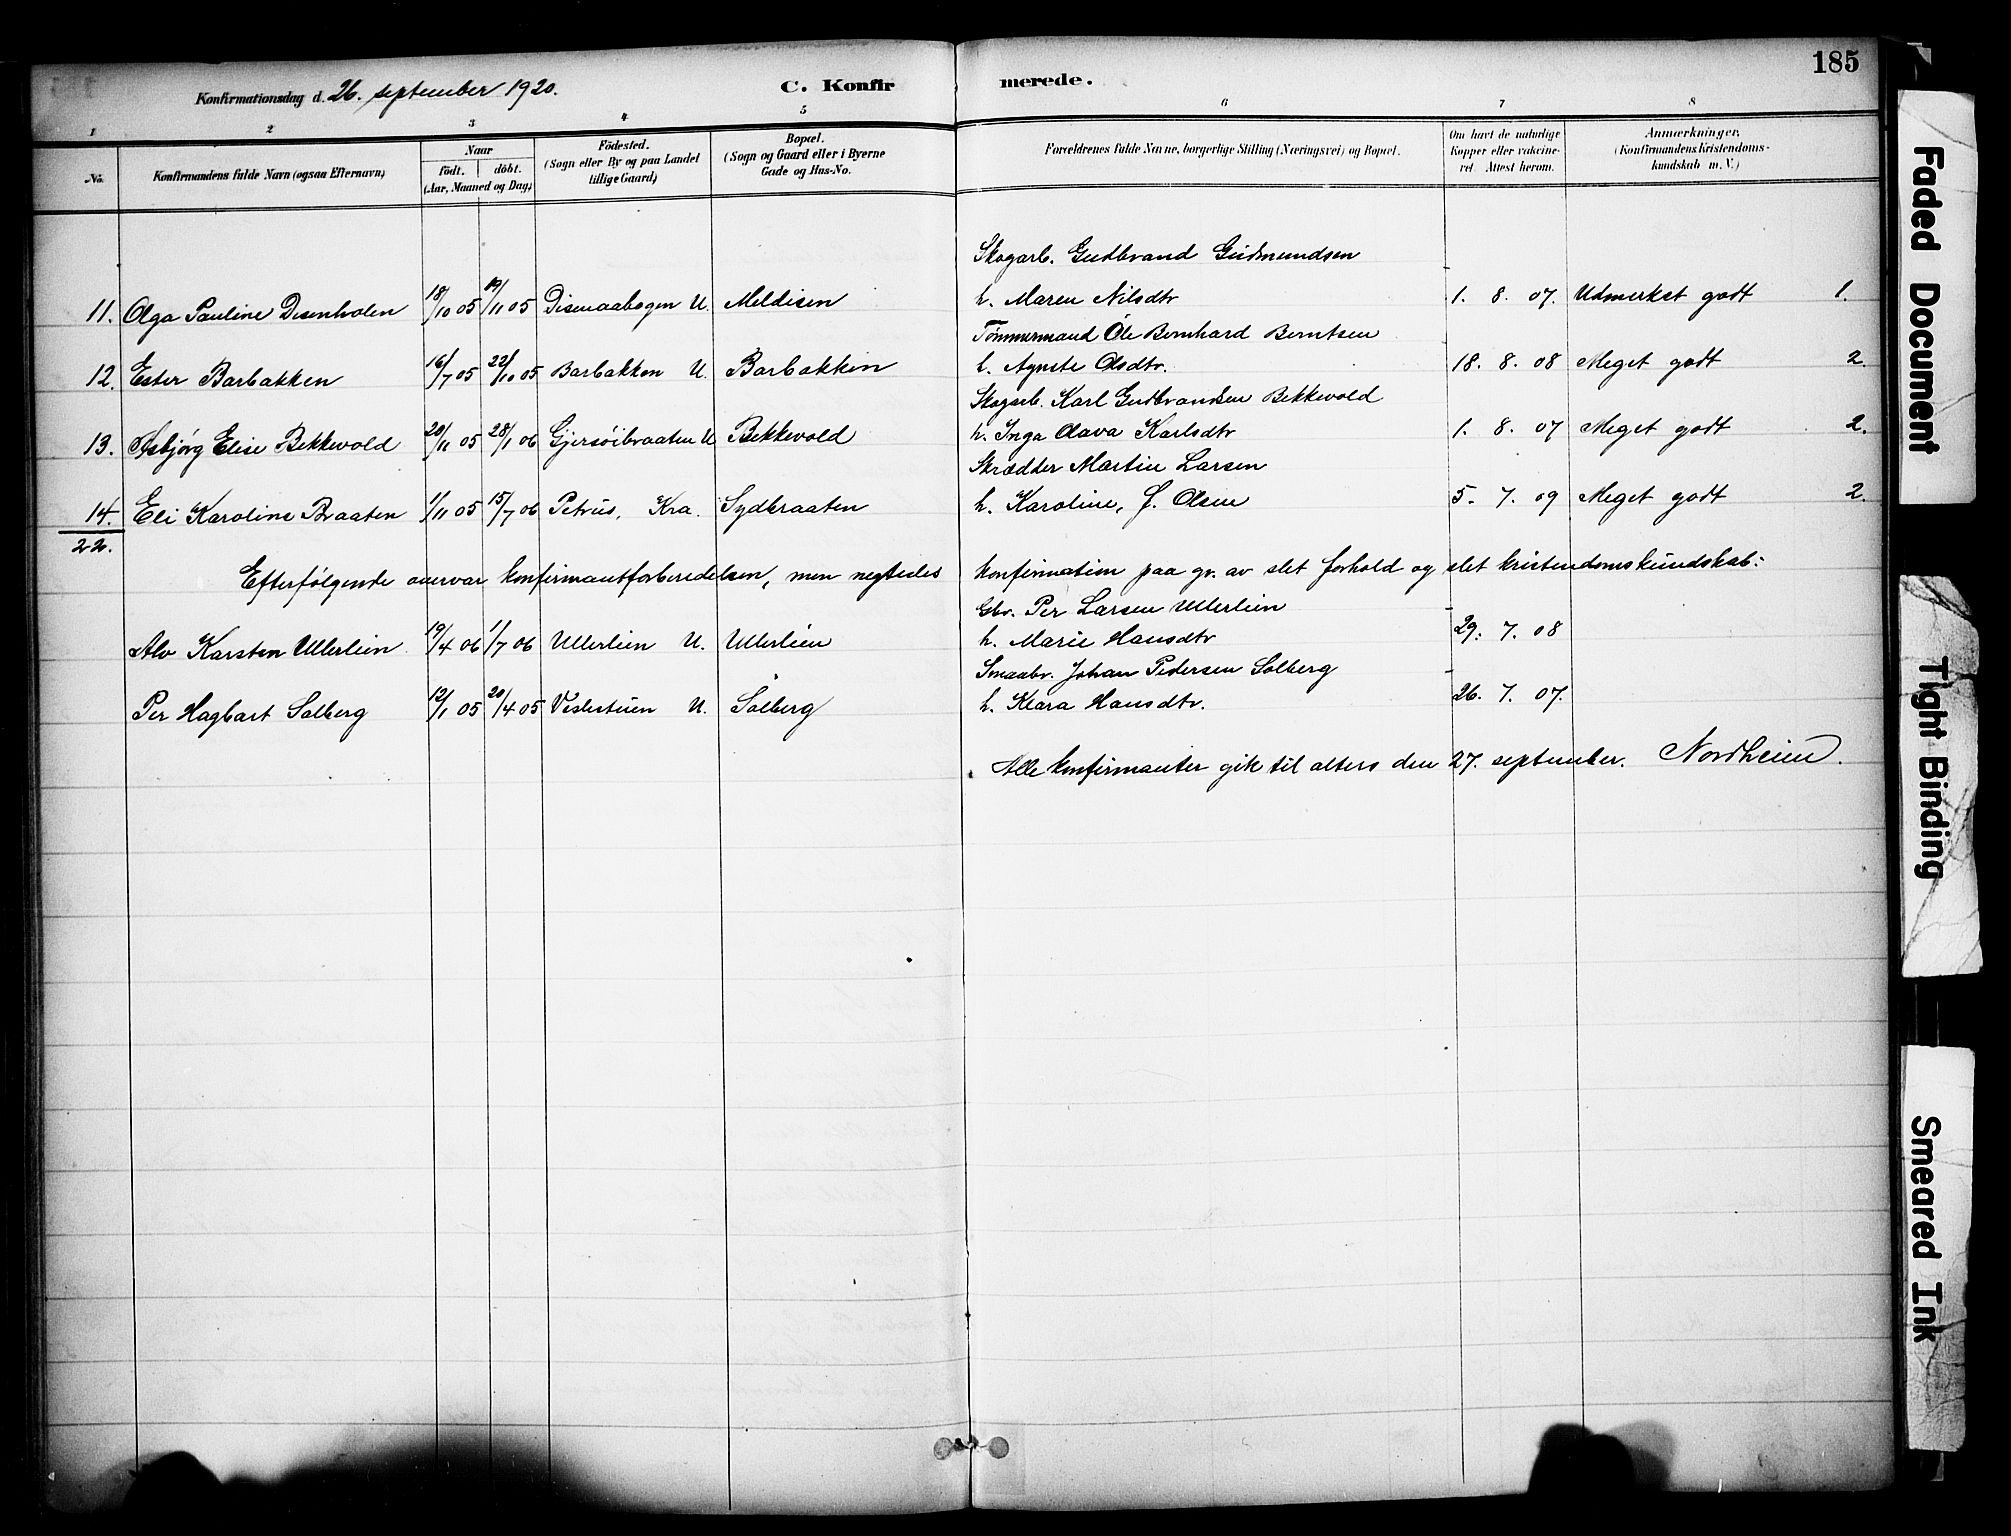 185
Konfirmationsdag d. 26. september 1920.
C. Konfirmerede.
1 2 3 4 5 6 7 8
No.
Konfirmandens fulde Navn (ogsaa Efternavn)
Naar
födt. döbt.
(Aar, Maaned og Dag)
Födested.
(Sogn eller By og paa Landet
tillige Gaard)
Bopæl.
(Sogn og Gaard eller i Byerne
Gade og Hus-No.
Forældrenes fulde Navne, borgerlige Stilling (Næringsvei) og Bopæl.
Om havt de naturlige
Kopper eller vakcine-
ret. Attest herom.
Anmærkninger,
(Konfirmandens Kristendoms-
kundskab m. V.)
Skogarb. Gudbrand Gudmundsen
11. Olga Pauline Disenholen 18/10 05 19/11 05 Disenaabogen U. Meldisen h. Maren Nilsdtr 1. 8. 07. Udmerket godt 1.
Tømmermand Ole Bernhard Berntsen
12. Ester Barbakken 16/7 05 22/10 05 Barbakken U. Barbakken h. Agnete Olsdtr. 18. 8. 08 Meget godt 2.
Skogarb. Karl Gudbrandsen Bekkevold
13. Asbjørg Elise Bekkevold 20/11 05 28/1 06 Gjersöibraaten U Bekkevold h. Inga Olava Karlsdtr 1. 8. 07 Meget godt 2.
Skrædder Martin Larsen
14. Eli Karoline Braaten 1/11 05 15/7 06 Petrus, Kra. Sydbraaten h. Karoline, f. Olsen 5. 7. 09 Meget godt 2.
22.
Efterfölgende overvar konfirmantforberedelsen, men negtedes konfirmation paa gr. av slet forhold og slet kristendomskundskab:
Gbr. Per Larsen Ullerlien
Alv Karsten Ullerlien 19/4 06 1/7 06 Ullerlien U. Ullerlien h. Marie Hansdtr 29. 7. 08
Smaabr. Johan Pedersen Solberg
Per Hagbart Solberg 12/1 05 20/4 05 Veslestuen U. Solberg h. Klara Hansdtr. 26. 7. 07.
Alle konfirmanter gik til alters den 27. september. Nordheim.
Faded Document
Tight Binding
Smeared Ink